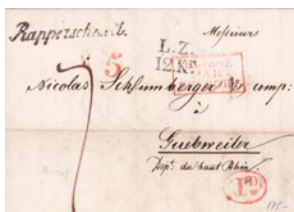 Rapperschwil.
Messieurs
L.Z.
12 Kr.
5
Nicolas Schlumberger & comp:
à
Guebweiler
Dep.t du haut Rhin
175.-